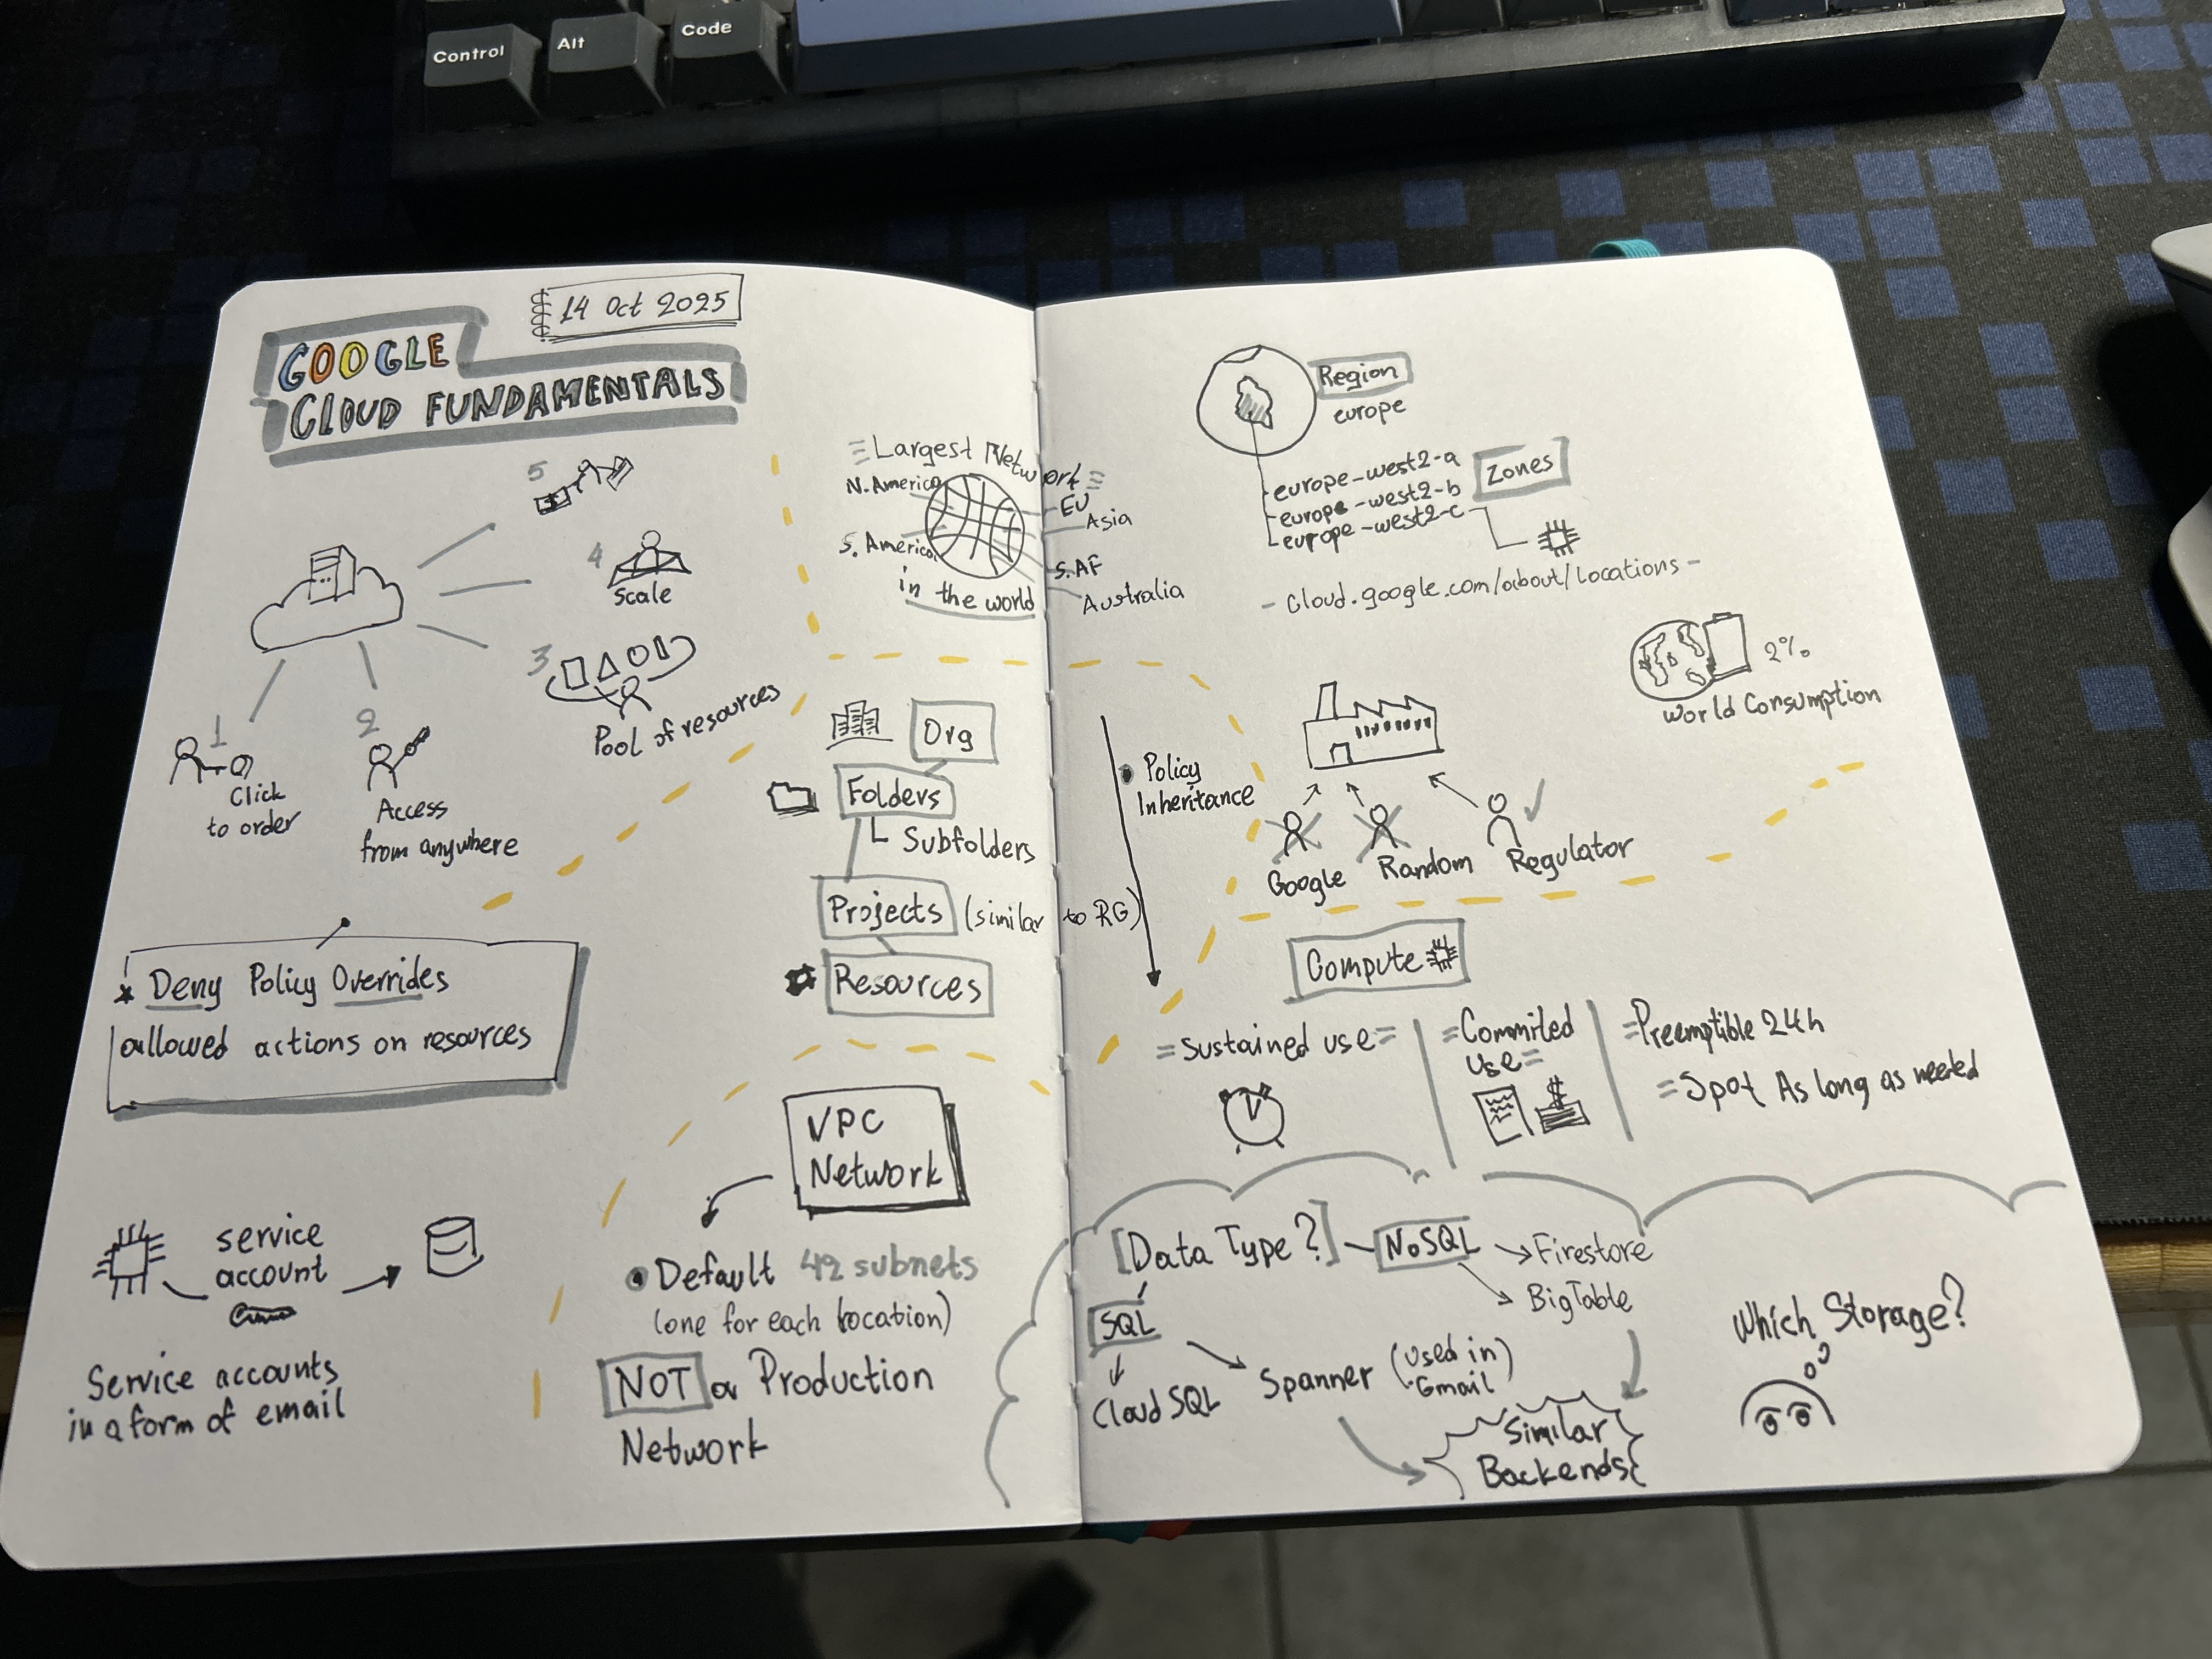 Control
Alt
Code
14 Oct 2025
GOOGLE
CLOUD FUNDAMENTALS
5
4
Scale
3
Pool of resources
1
Click
to order
2
Access
from anywhere
Largest Network
N. America
S. America
EU
Asia
S. AF
Australia
in the world
Org
Folders
Subfolders
Projects (similar to RG)
Resources
Policy
Inheritance
Deny Policy Overrides
allowed actions on resources
service
account
Service accounts
in a form of email
VPC
Network
Default 42 subnets
(one for each location)
NOT a Production
Network
Region
europe
europe-west2-a
europe-west2-b
europe-west2-c
Zones
- cloud.google.com/about/locations -
2%
World Consumption
Google
Random
Regulator
Compute
=Sustained use=
=Commited
use=
=Preemptible 24h
=Spot As long as needed
[Data Type?]
NoSQL
Firestore
BigTable
SQL
Cloud SQL
Spanner (Used in
Gmail)
Similar
Backends
Which Storage?